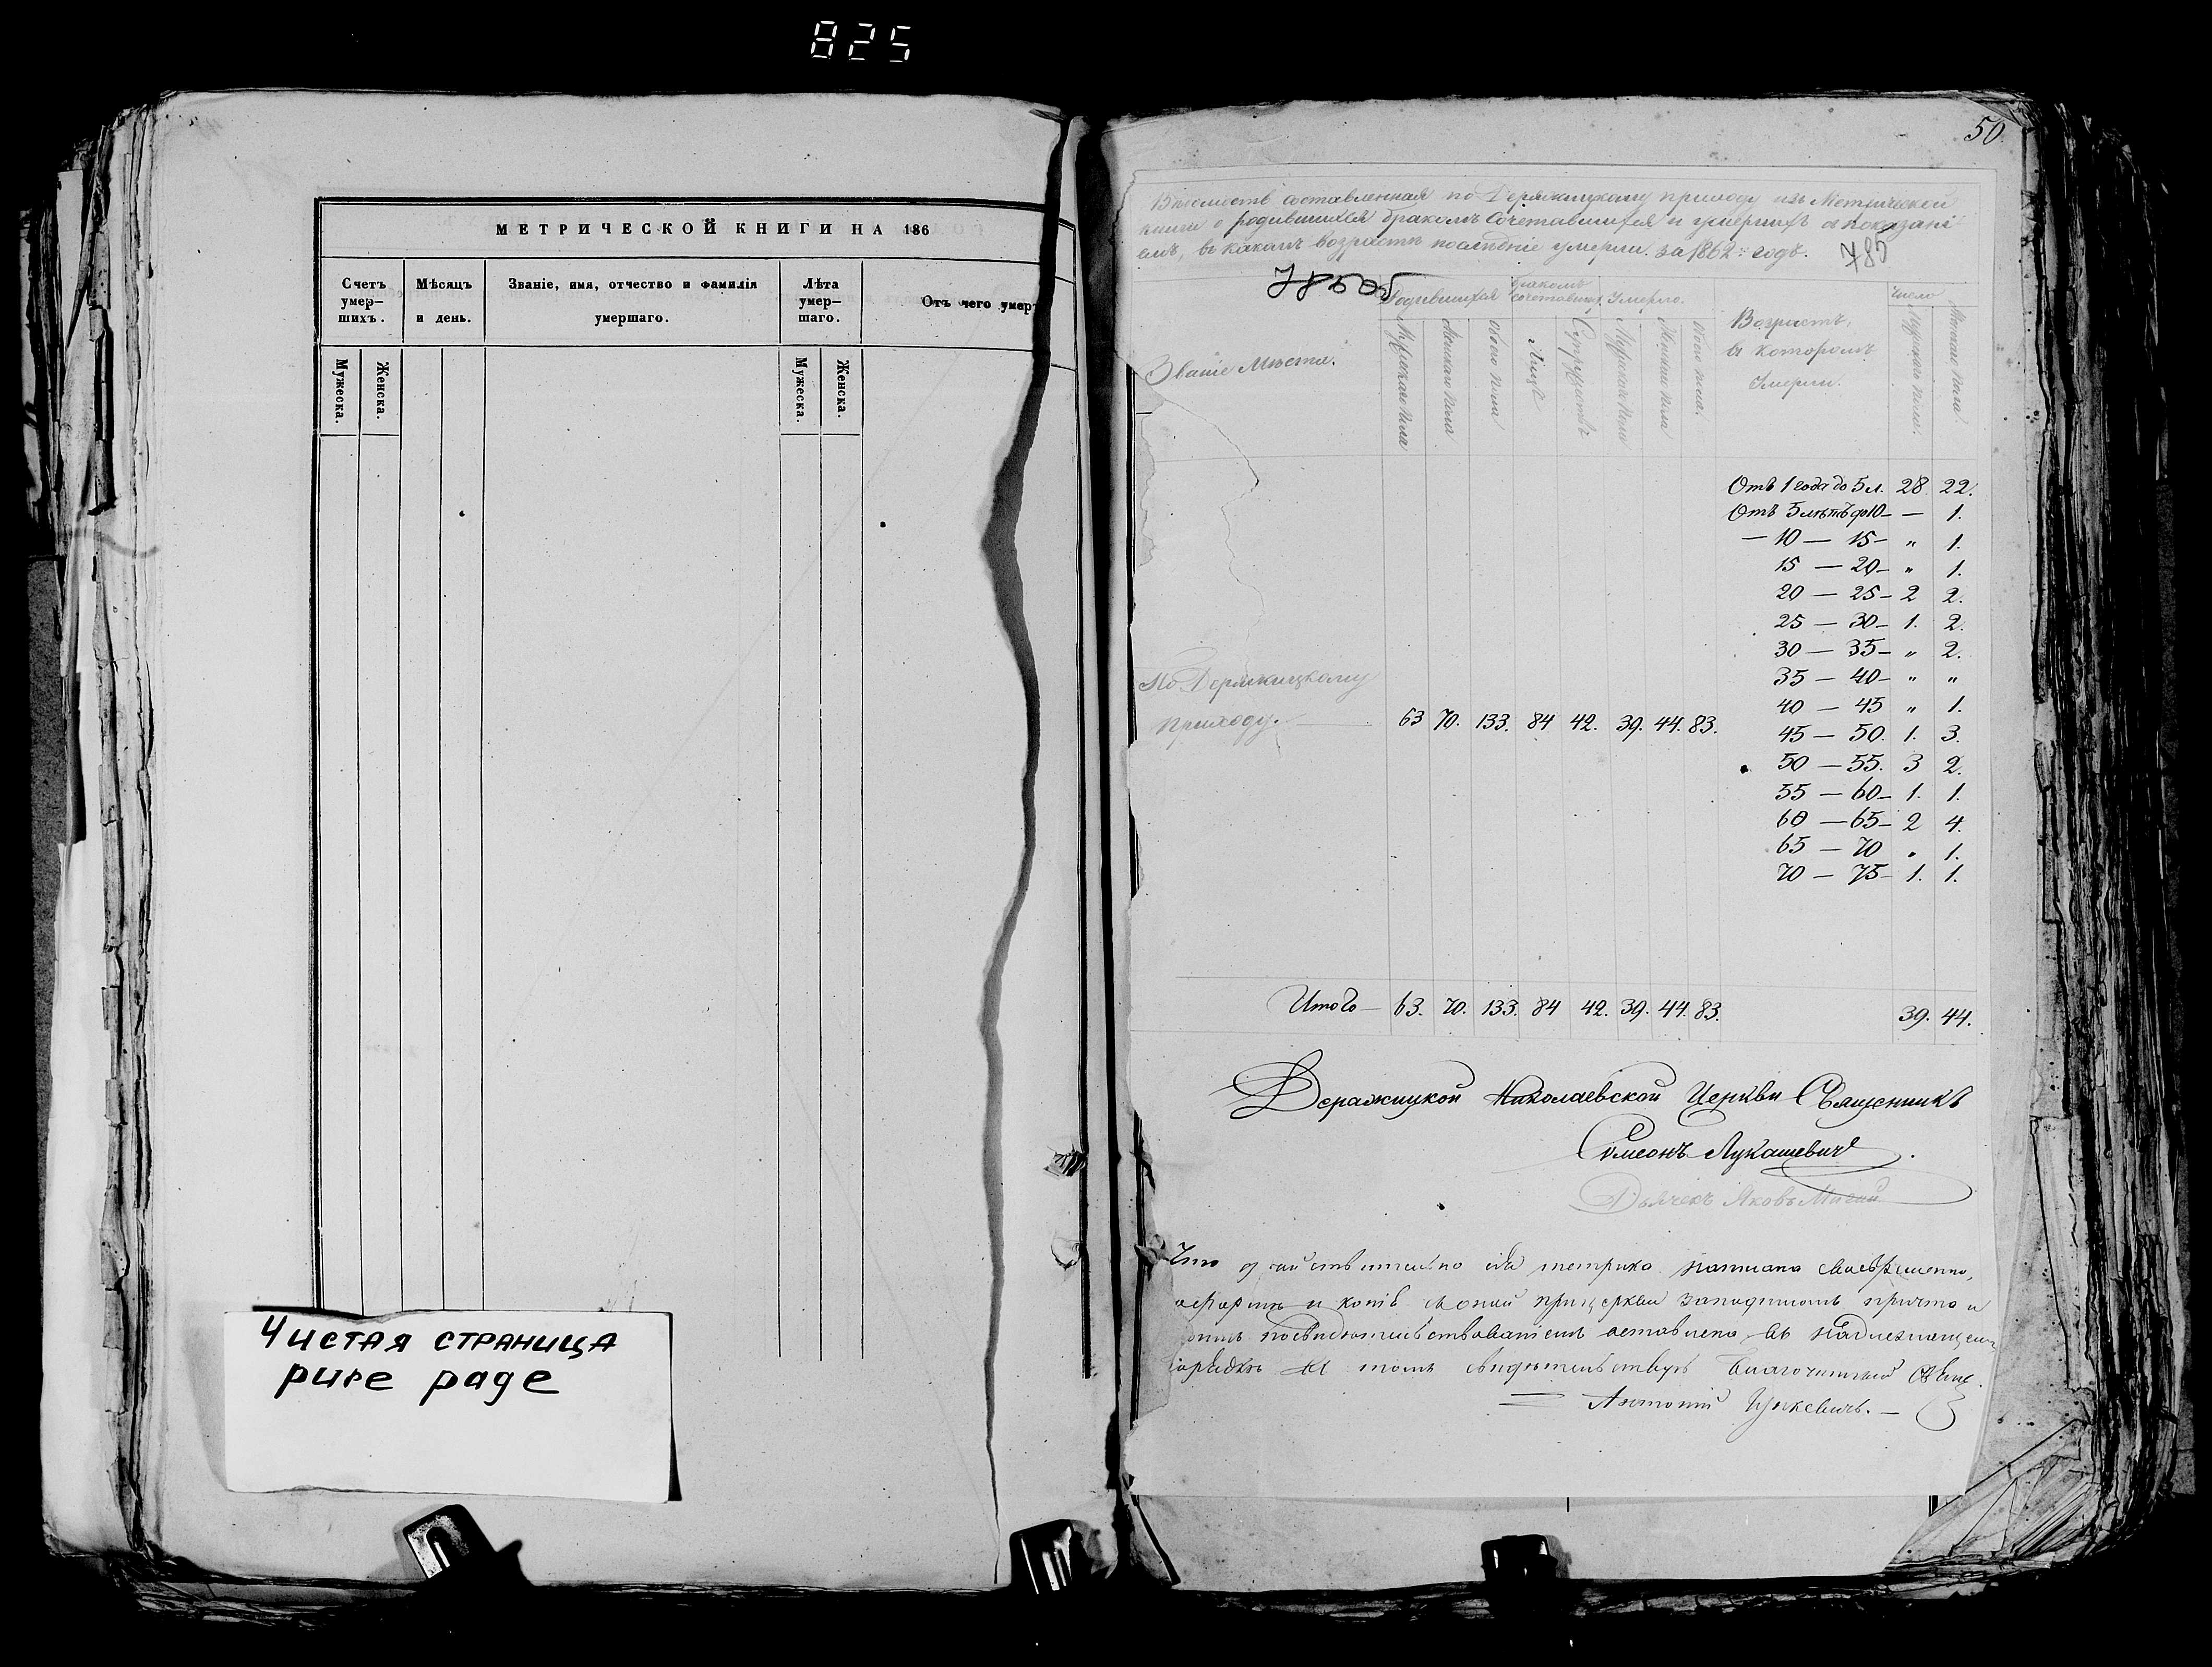 825
МЕТРИЧЕСКОЙ КНИГИ НА 186
Счетъ умер-шихъ.
Мѣсяцъ и день.
Званіе, имя, отчество и фамилія умершаго.
Лѣта умер-шаго.
Отъ чего умер
Мужеска.
Женска.
Мужеска.
Женска.
Чистая страница
pure page
50
Вѣдомость составленная по Деражицкому приходу изъ Метрической
книги о родившихся бракомъ сочетавшихся и умершихъ съ показані
емъ, въ какомъ возрастѣ послѣдніе умерли. за 1862 годъ.
785
Званіе Мѣста.
Родившихся
Бракомъ сочетавших.
Умерло.
Возрастъ,
въ которомъ
Умерли.
Число
Мужеска пола
Женскаго пола
Обоего пола
Лицъ
Супружествъ
Мужеска пола
Женска пола
Обоего пола.
Мужеска пола.
Женска пола.
Отъ 1 года до 5 л. 28 22.
Отъ 5 лѣтъ до 10 — — 1.
— 10 — 15 — " 1.
15 — 20 — " 1.
20 — 25 — 2 2.
25 — 30 — 1. 2.
30 — 35 — " 2.
35 — 40 — " "
40 — 45 " 1.
45 — 50. 1. 3.
50 — 55. 3 2.
55 — 60 — 1. 1.
60 — 65 — 2 4.
65 — 70 " 1.
70 — 75 — 1. 1.
По Деражицкому
приходу. — 63 70. 133. 84 42. 39. 44. 83.
Итого — 63. 70. 133. 84 42. 39. 44. 83. 39. 44.
Деражицкой Николаевской Церкви Священникъ
Симеонъ Лукашевичъ.
Дьячекъ Яковъ
Что дѣйствительно сія метрика написана своевременно,
и копія съ оной при церкви за подписомъ причта и
посвидѣтельствованіемъ оставлена въ надлежащемъ
порядкѣ въ томъ свидѣтельствую Благочинный Свящ.
Антоній